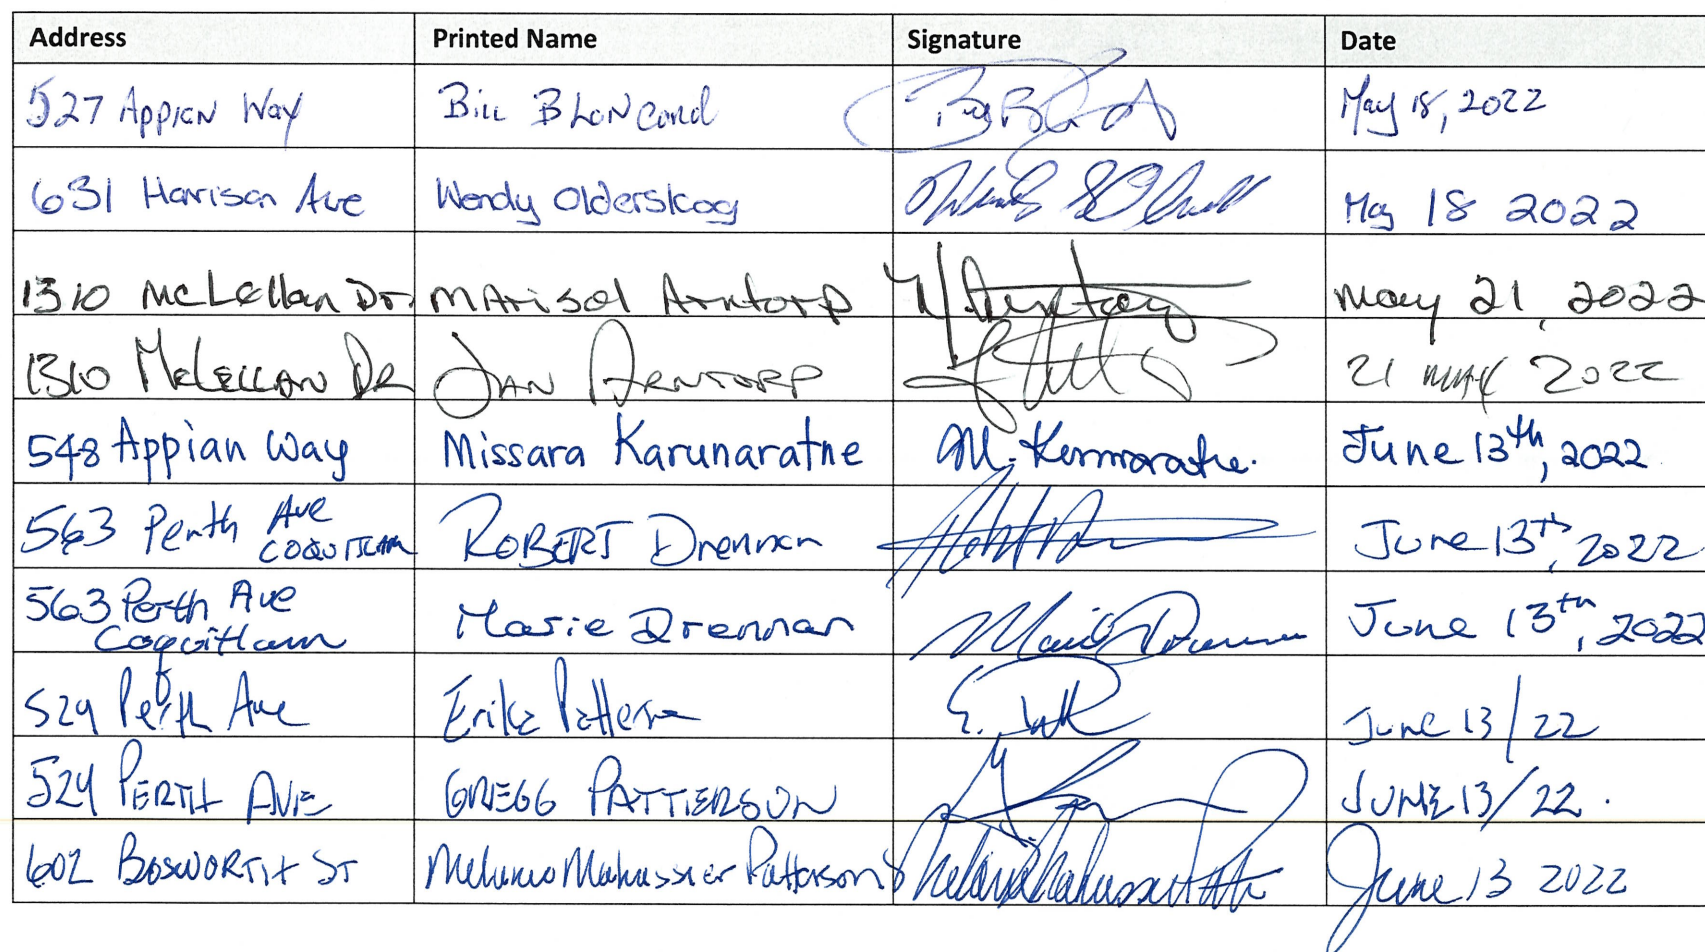 Address Printed Name Signature Date
527 Appian Way Bill Blancard May 18, 2022
631 Harrison Ave Wendy Olderskog May 18 2022
1310 McLellan Dr. Marisol Arntorp May 21, 2022
1310 McLELLAN DR JAN ARNTORP 21 MAY 2022
548 Appian Way Missara Karunaratne M. Karunaratne. June 13th, 2022
563 Perth Ave COQUITLAM ROBERT Drennan June 13th, 2022
563 Perth Ave Coquitlam Marie Drennan Marie Drennan June 13th, 2022
529 Perth Ave Erika Patterson June 13/22
529 PERTH AVE GREGG PATTERSON JUNE 13/22.
602 BOSWORTH ST Patterson June 13 2022